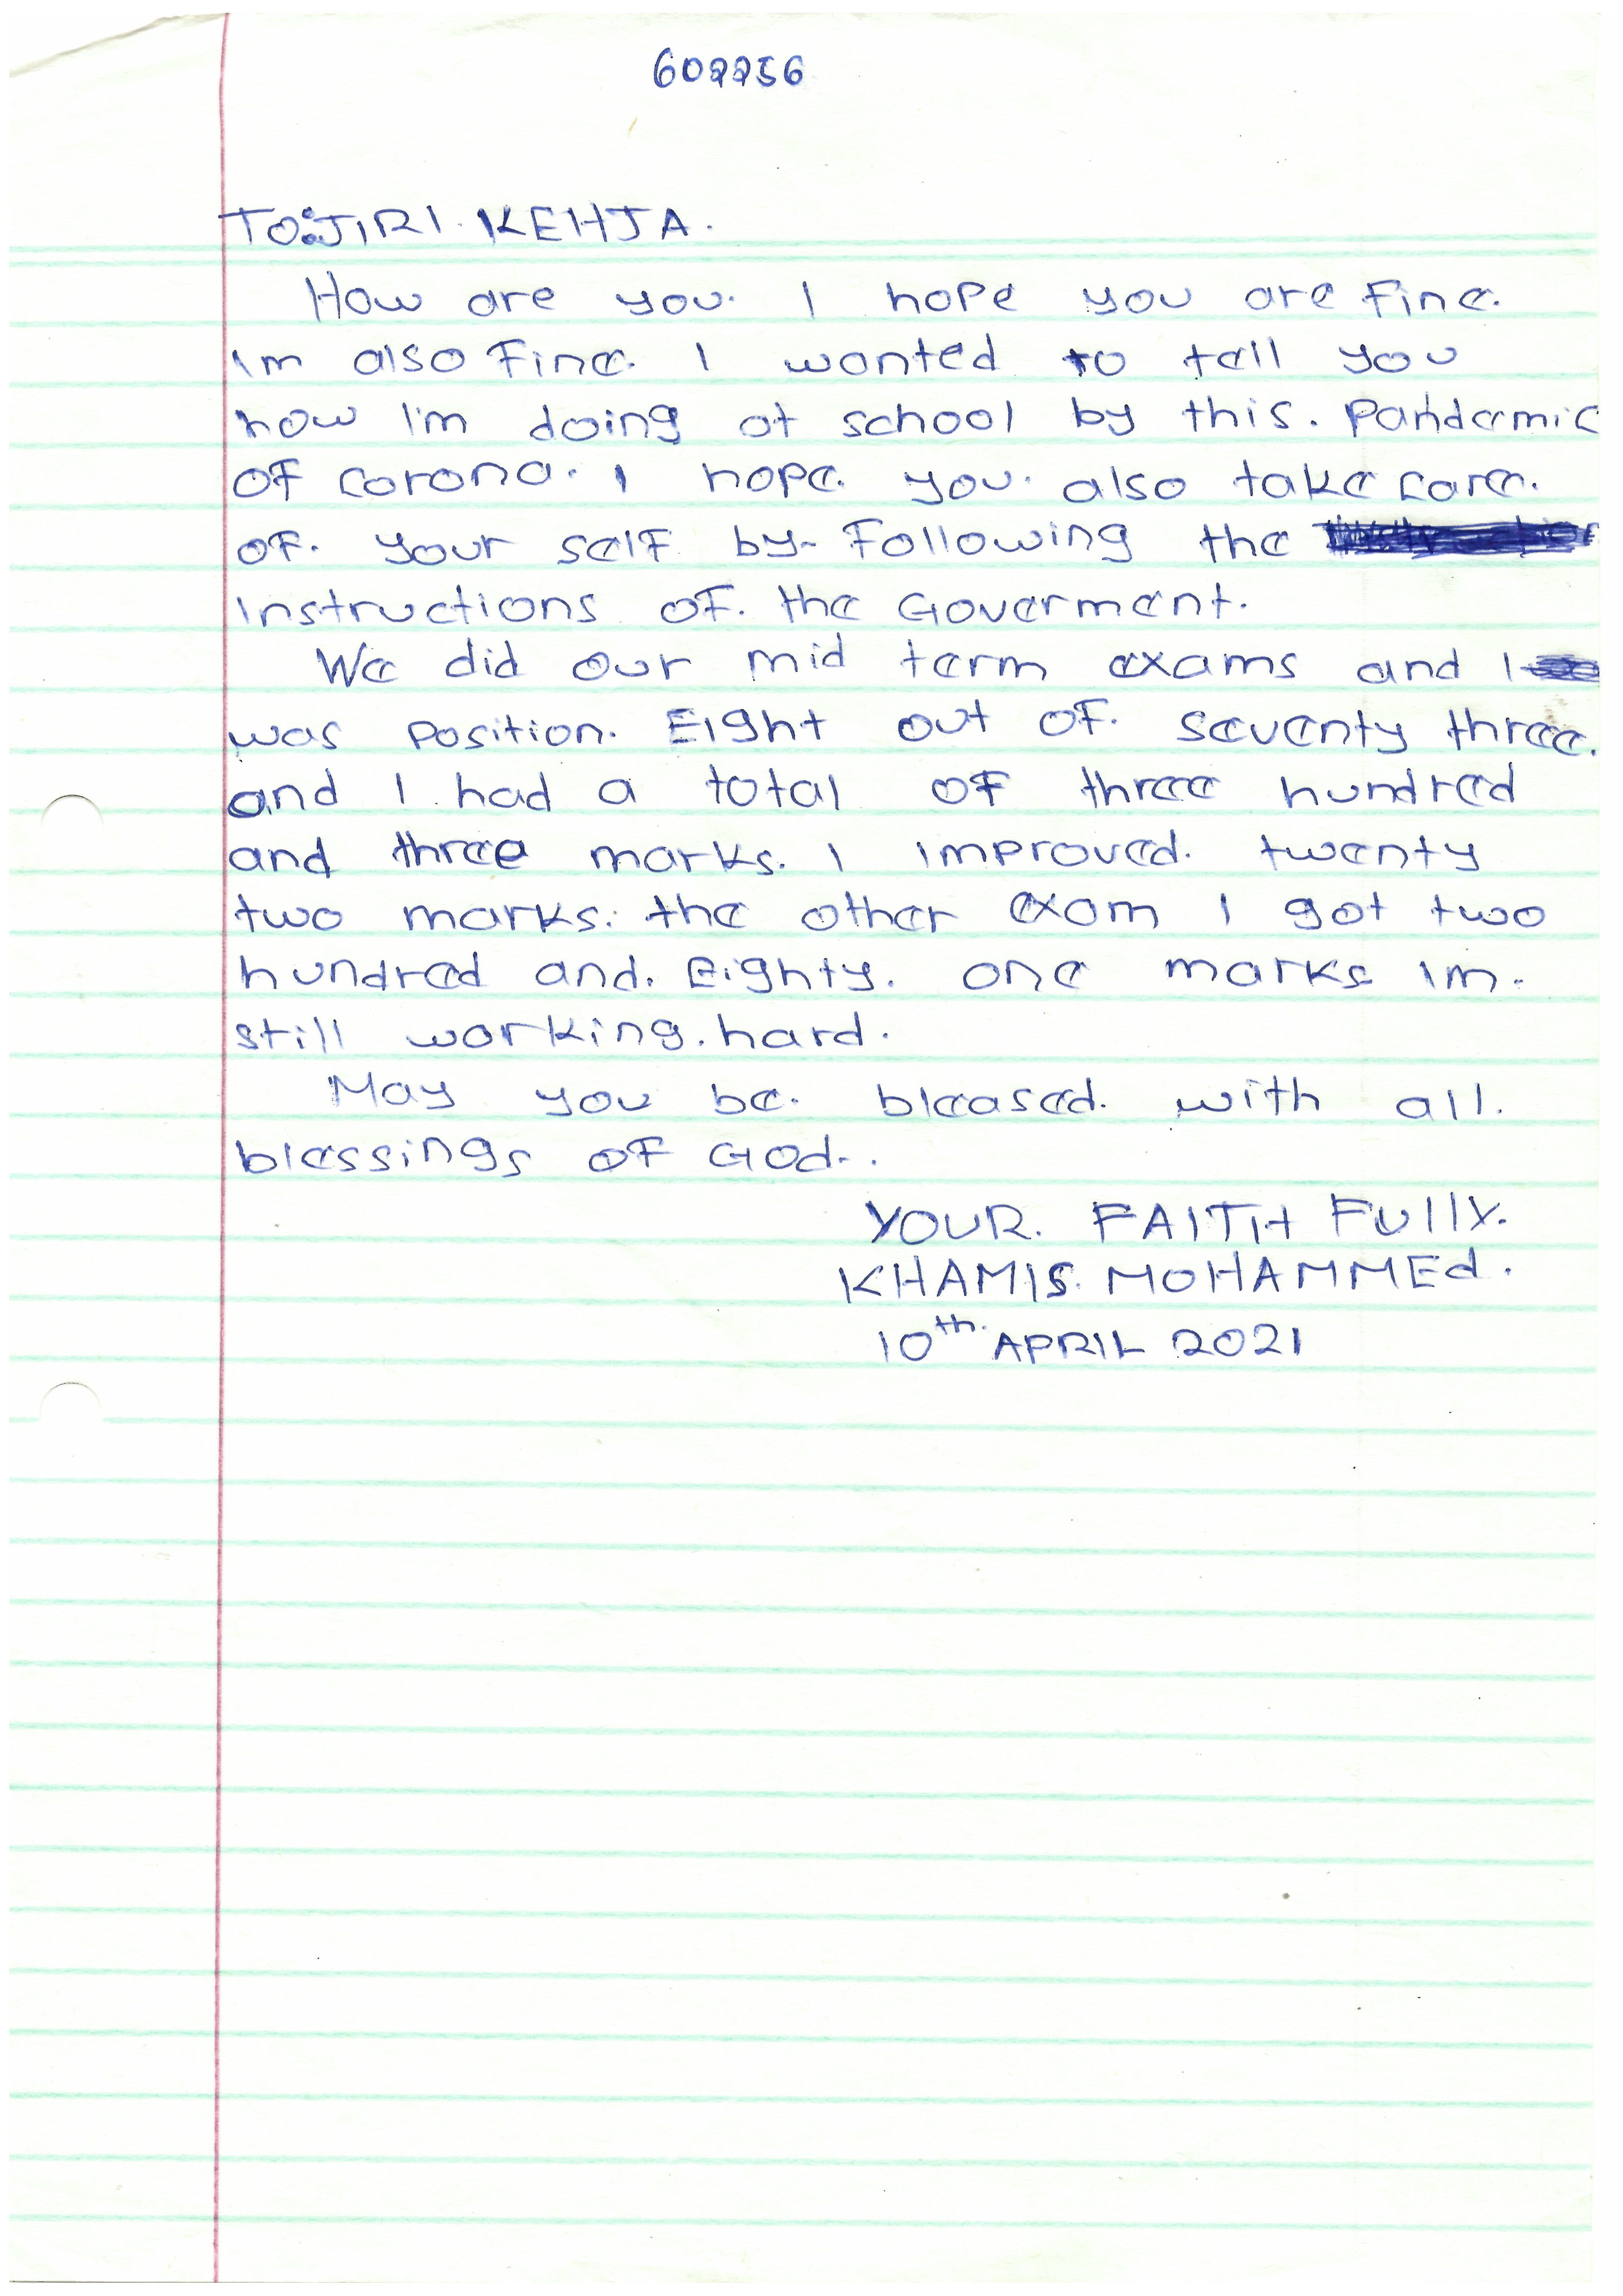 602256
TO: JIRI KEHJA.
How are you. I hope you are fine.
Im also Fine. I wanted to tell you
how I'm doing at school by this. Pandemic
of corona. I hope. you. also take care.
of. your self by- Following the
instructions of. the Goverment.
We did our mid term exams and I
was Position. Eight out of. seventy three.
and I had a total of three hundred
and three marks. I improved. twenty
two marks. the other exam I got two
hundred and. Eighty. one marks Im.
still working. hard.
May you be. bleased. with all.
blessings of God..
YOUR. FAITH Fully.
KHAMIS. MOHAMMEd.
10th. APRIL 2021